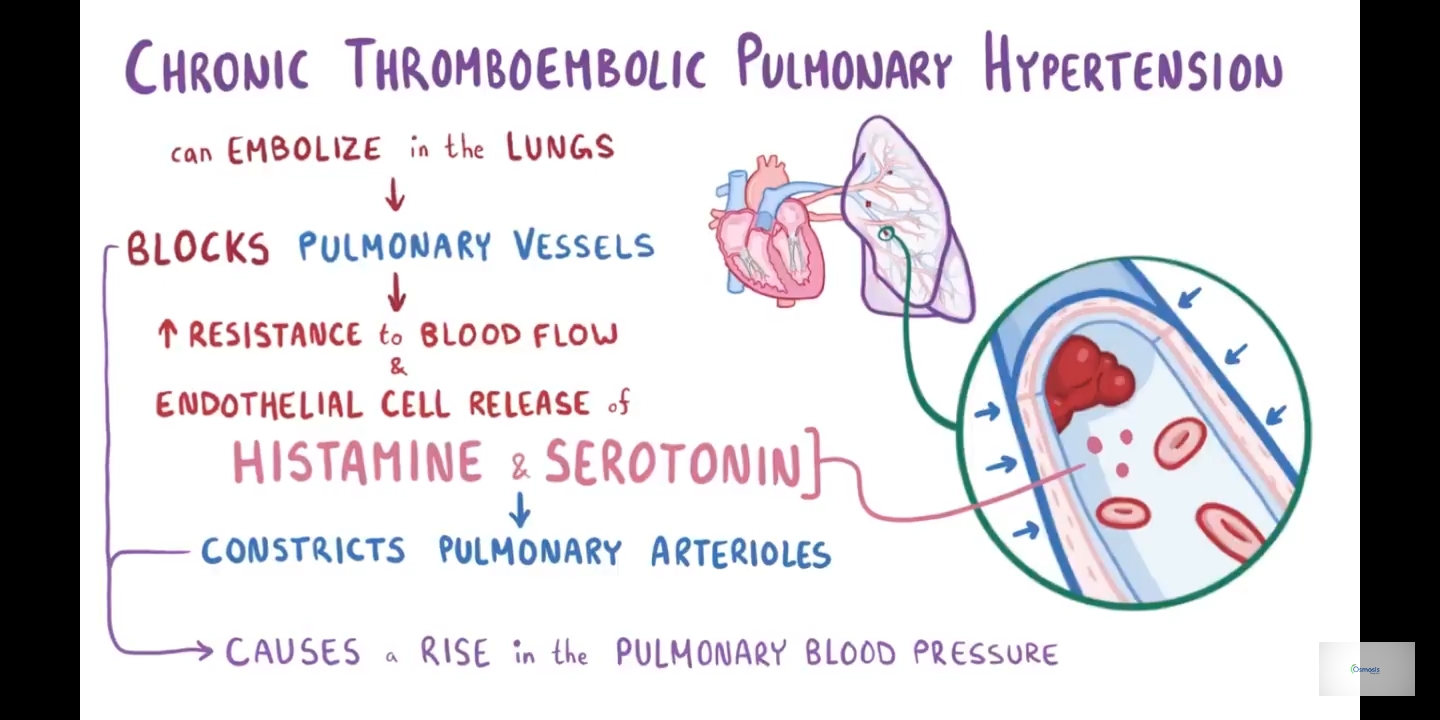 CHRONIC THROMBOEMBOLIC PULMONARY HYPERTENSION
can EMBOLIZE in the LUNGS
BLOCKS PULMONARY VESSELS
↑ RESISTANCE to BLOOD FLOW
&
ENDOTHELIAL CELL RELEASE of
HISTAMINE & SEROTONIN]
CONSTRICTS PULMONARY ARTERIOLES
CAUSES a RISE in the PULMONARY BLOOD PRESSURE
Osmosis